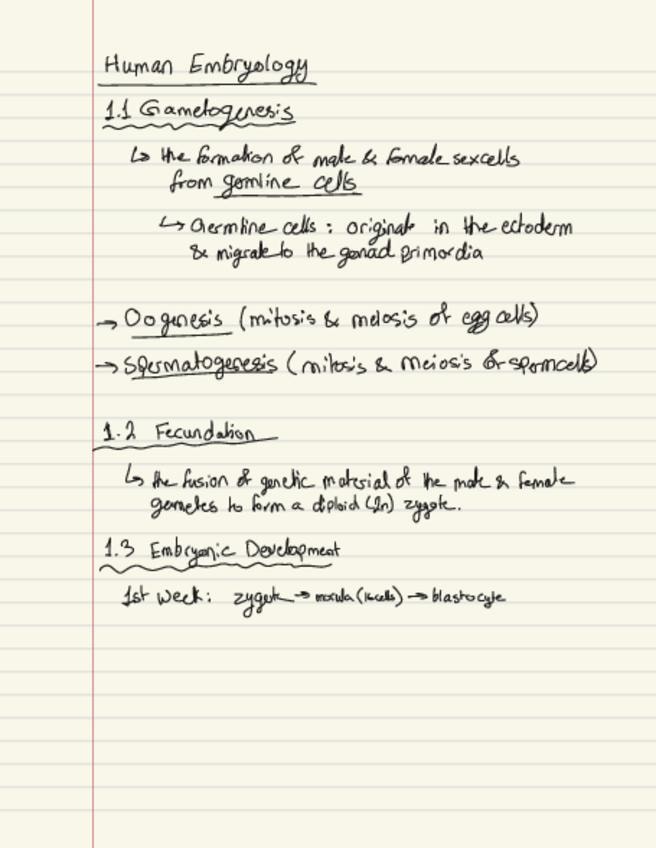 Human Embryology
1.1 Gametogenesis
↳ the formation of male & female sexcells
from germline cells
↳ Germline cells : originate in the ectoderm
& migrate to the gonad primordia
→ Oogenesis (mitosis & meiosis of egg cells)
→ Spermatogenesis (mitosis & meiosis of spermcells)
1.2 Fecundation
↳ the fusion of genetic material of the male & female
gametes to form a diploid (2n) zygote.
1.3 Embryonic Development
1st week: zygote → morula (16cells) → blastocyte